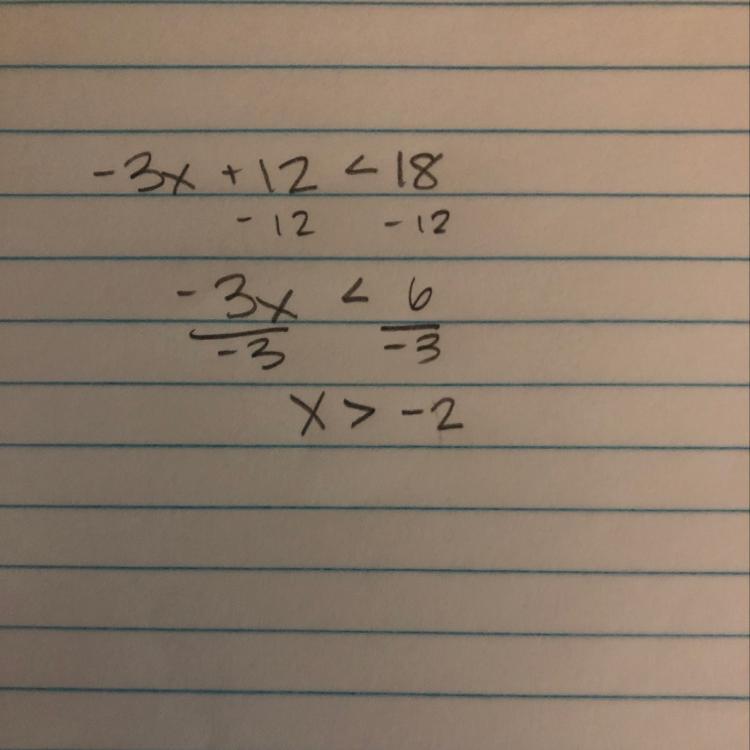 -3x + 12 < 18
-12 -12
-3x < 6
-3 -3
x > -2